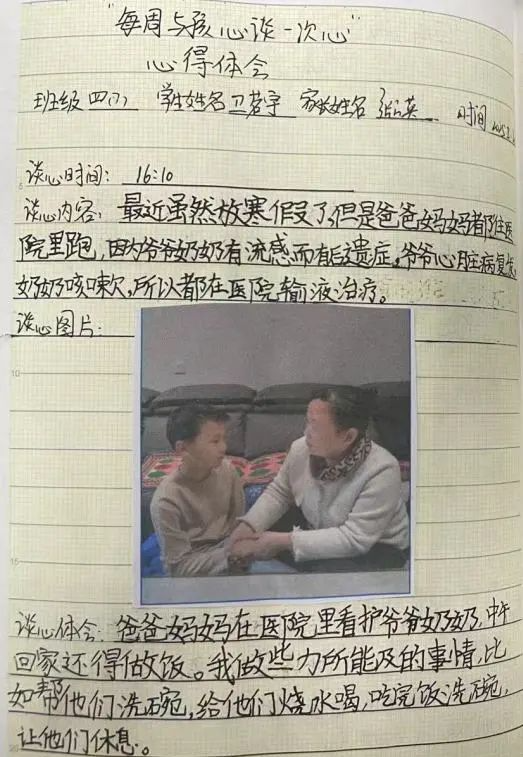 "每周与孩心谈一次心"
心得体会
班级 四(1) 学生姓名 卫若宇 家长姓名 张英 时间
谈心时间: 16:10
谈心内容: 最近虽然放寒假了,但是爸爸妈妈都往医
院里跑,因为爷爷奶奶有流感而有后遗症,爷爷心脏病复发,
奶奶咳嗽,所以都在医院输液治疗。
谈心图片:
10
15
谈心体会: 爸爸妈妈在医院里看护爷爷奶奶,中午
回家还得做饭。我做些力所能及的事情,比
如帮他们洗碗,给他们烧水喝,吃完饭洗碗,
让他们休息。